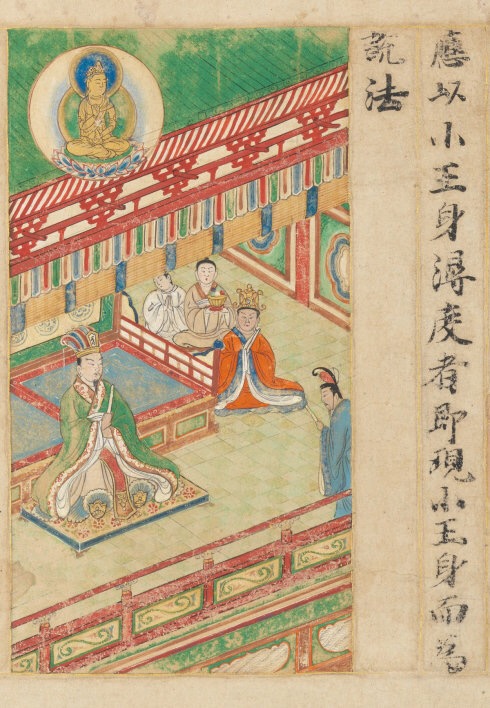 應以小王身淂度者即現小王身而為
說法